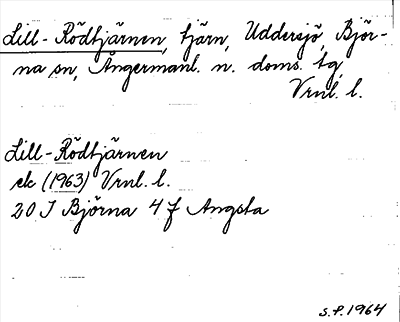 Lill-Rödtjärnen, tjärn, Uddersjö, Björ-
na sn, Ångermanl. n. doms. tg,
Vrnl. l.
Lill-Rödtjärnen
ek (1963) Vrnl. l.
20 J Björna 4 f Angsta
S.P. 1964